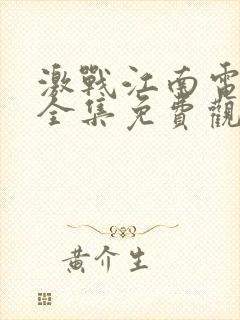 激戰江南電
全集免費觀
黃介生